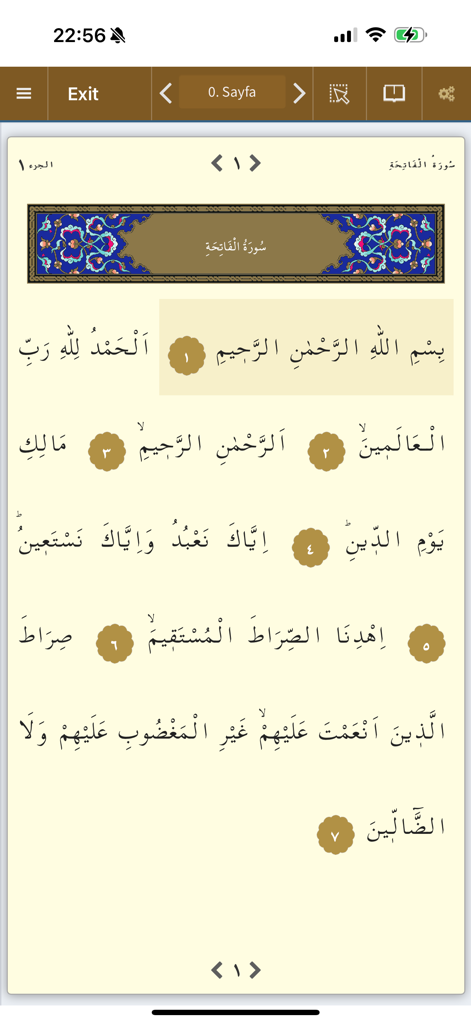 22:56
Exit
0. Sayfa
سُورَةُ الْفَاتِحَةِ
١
الجزء ١
سُورَةُ الْفَاتِحَةِ
بِسْمِ اللّٰهِ الرَّحْمٰنِ الرَّح۪يمِ ١ اَلْحَمْدُ لِلّٰهِ رَبِّ
الْعَالَم۪ينَۙ ٢ اَلرَّحْمٰنِ الرَّح۪يمِۙ ٣ مَالِكِ
يَوْمِ الدّ۪ينِۜ ٤ اِيَّاكَ نَعْبُدُ وَاِيَّاكَ نَسْتَع۪ينُۜ
٥ اِهْدِنَا الصِّرَاطَ الْمُسْتَق۪يمَۙ ٦ صِرَاطَ
الَّذ۪ينَ اَنْعَمْتَ عَلَيْهِمْۙ غَيْرِ الْمَغْضُوبِ عَلَيْهِمْ وَلَا
الضَّٓالّ۪ينَ ٧
١